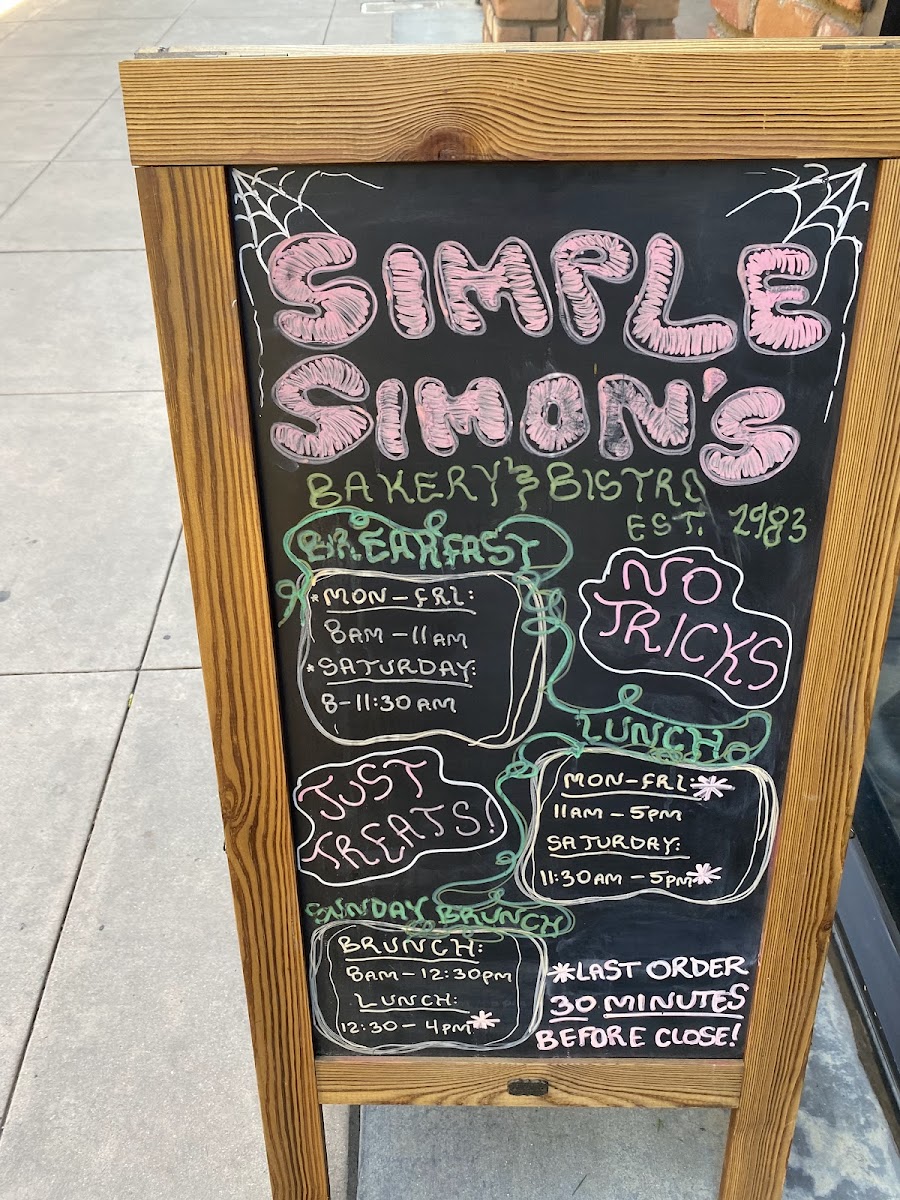 SIMPLE
SIMON'S
BAKERY & BISTRO
EST. 1983
BREAKFAST
*MON-FRI:
8AM-11AM
*SATURDAY:
8-11:30AM
NO
TRICKS
LUNCH
MON-FRI:*
11AM-5PM
SATURDAY:
11:30AM-5PM*
JUST
TREATS!
SUNDAY BRUNCH
BRUNCH:
8AM-12:30PM
LUNCH:
12:30-4PM*
*LAST ORDER
30 MINUTES
BEFORE CLOSE!